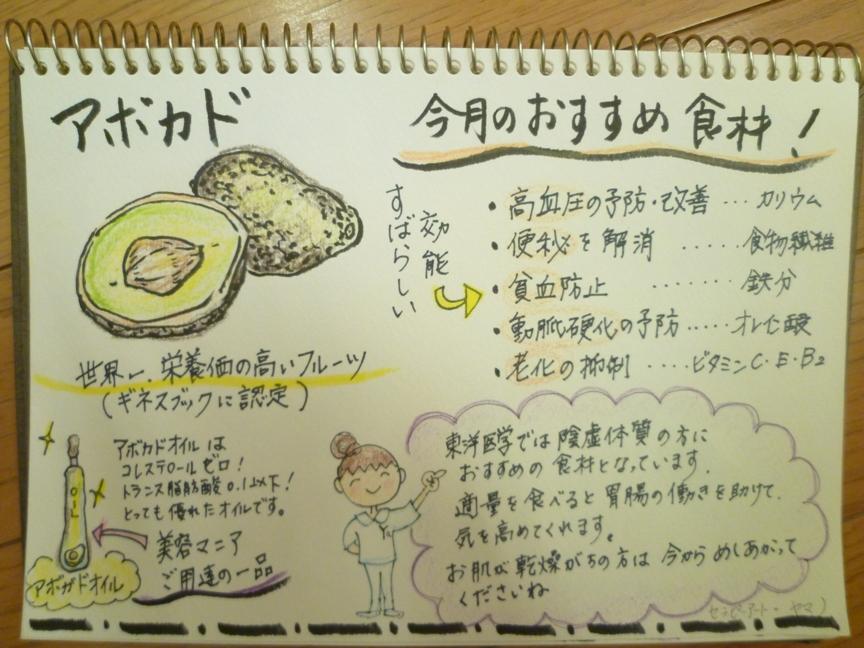 アボカド
今月のおすすめ食材!
すばらしい
効能
・高血圧の予防・改善 … カリウム
・便秘を解消 …… 食物繊維
・貧血防止 ……. 鉄分
・動脈硬化の予防….. オレイン酸
・老化の抑制 …. ビタミンC・E・B2
世界一、栄養価の高いフルーツ
(ギネスブックに認定)
アボカドオイルは
コレステロールゼロ!
トランス脂肪酸0.1以下!
とっても優れたオイルです。
OIL
美容マニア
ご用達の一品
アボガドオイル
東洋医学では陰虚体質の方に
おすすめの食材となっています.
適量を食べると胃腸の働きを助けて、
気を高めてくれます。
お肌が乾燥がちの方は今からめしあがって
くださいね